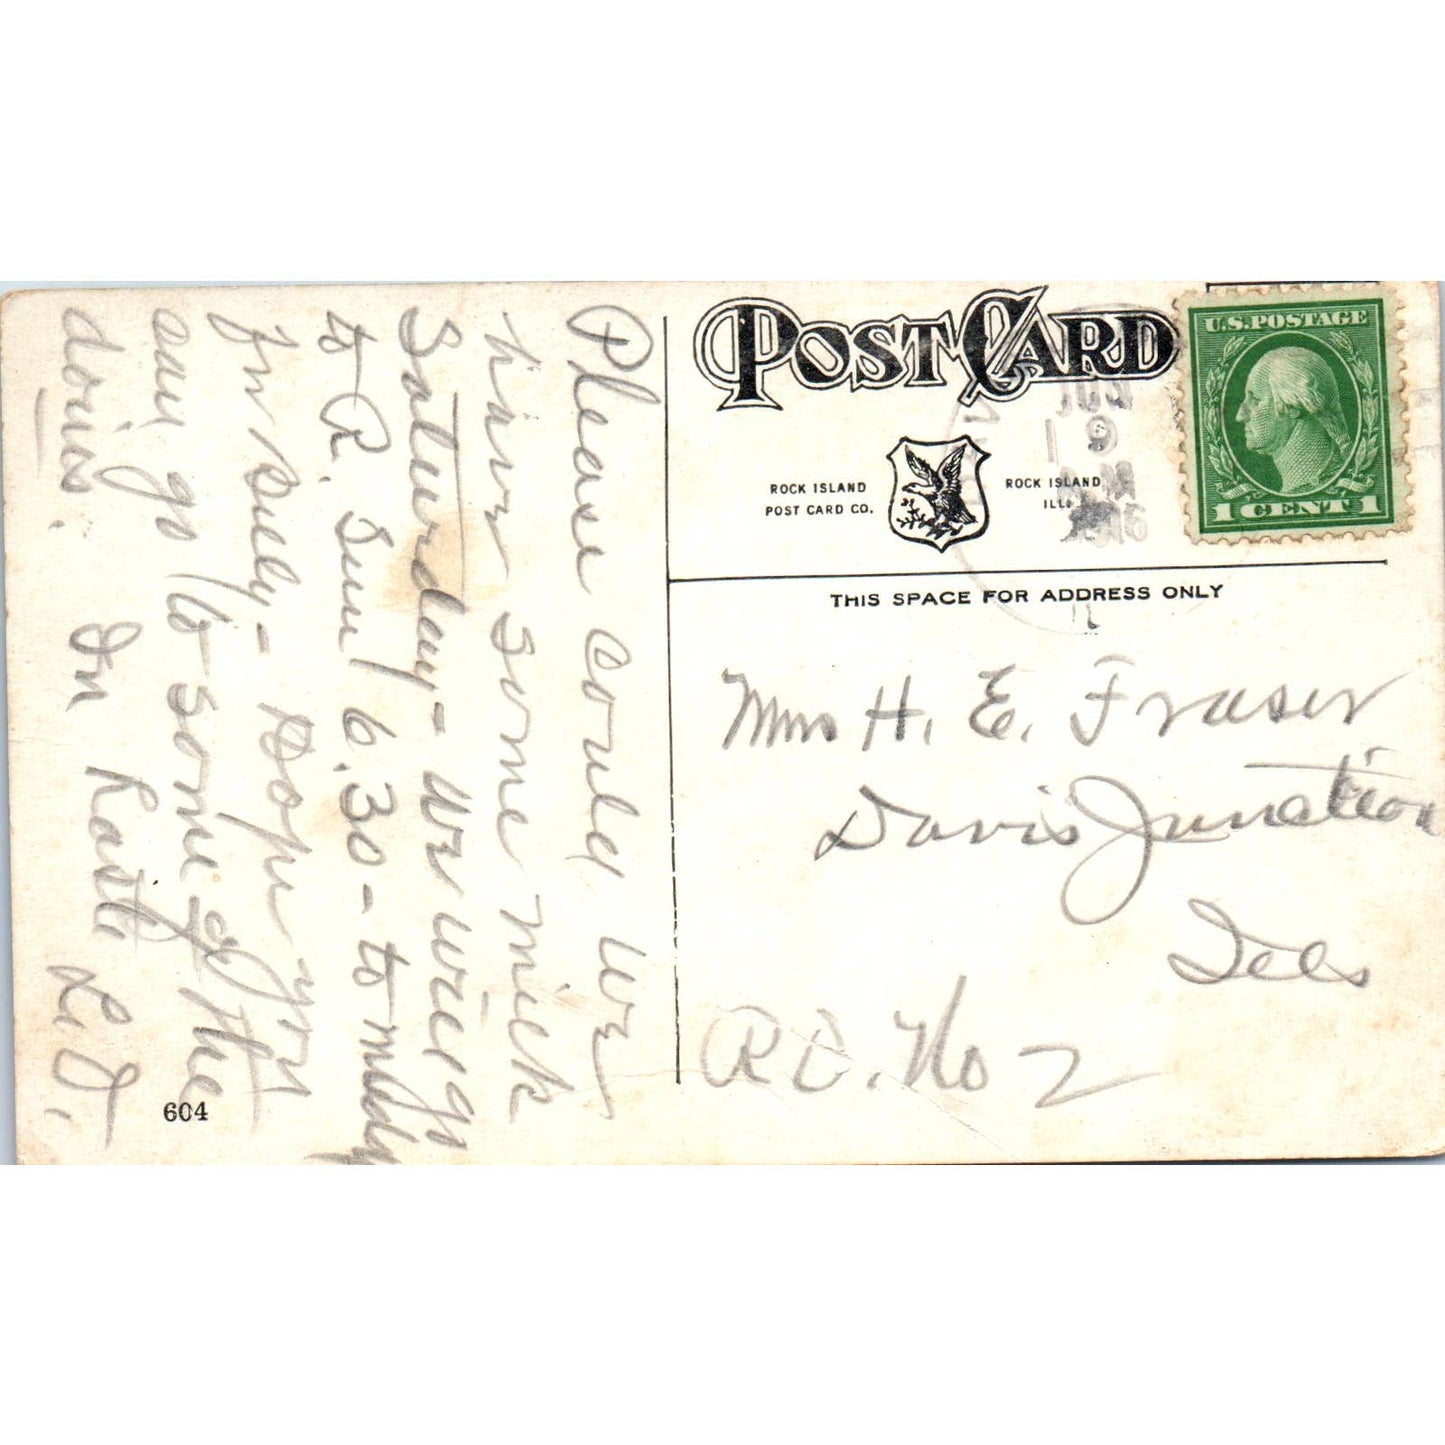 POST CARD
ROCK ISLAND
POST CARD CO.
ROCK ISLAND
ILL.
JUN
19
AM
1916
U.S. POSTAGE
1 CENT 1
THIS SPACE FOR ADDRESS ONLY
Mrs H. E. Fraser
Davis Junction
Ills
R D. No 2
Please could we
have some milk
Saturday - we will go
to R. Sun 6.30 - to
for Sully - Hope you
can go to some of the
doins. In haste L. J.
604